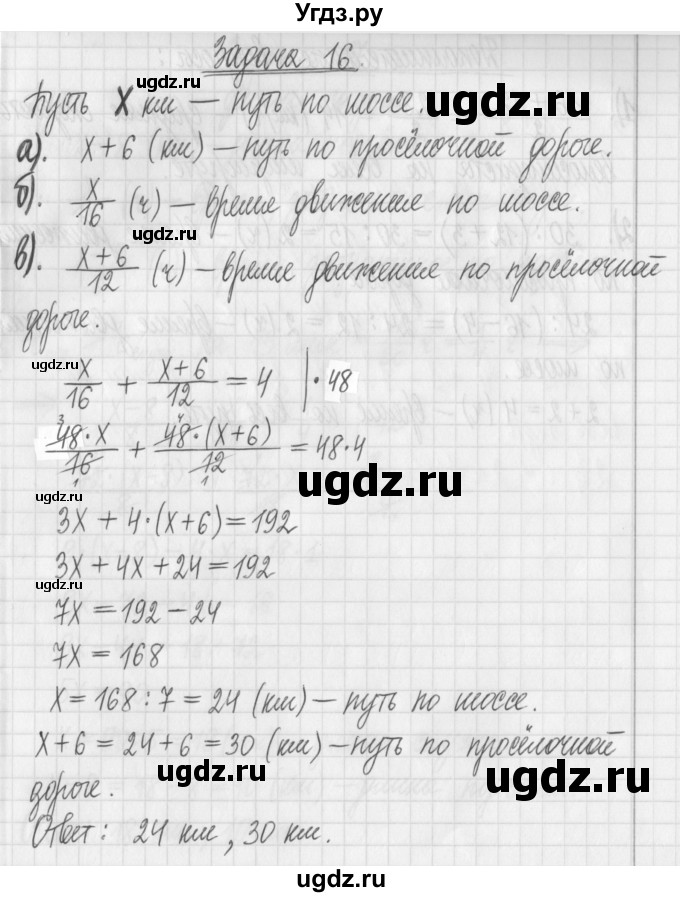 Угдз.ру
Задача 16.
Пусть X км – путь по шоссе.
ugdz.ru
а). X+6 (км) – путь по просёлочной дороге.
б). X/16 (ч) – время движения по шоссе.
ugdz.ru
в). X+6/12 (ч) – время движения по просёлочной
дороге.
ugdz.ru
X/16 + X+6/12 = 4 |·48
3 4
48·X/16 + 48·(X+6)/12 = 48·4
1 1
ugdz.ru
ugdz.ru
3X + 4·(X+6) = 192
3X + 4X + 24 = 192
ugdz.ru
7X = 192 – 24
7X = 168
X = 168 : 7 = 24 (км) – путь по шоссе.
X+6 = 24+6 = 30 (км) – путь по просёлочной
ugdz.ru
ugdz.ru
дороге.
Ответ: 24 км, 30 км.
ugdz.ru